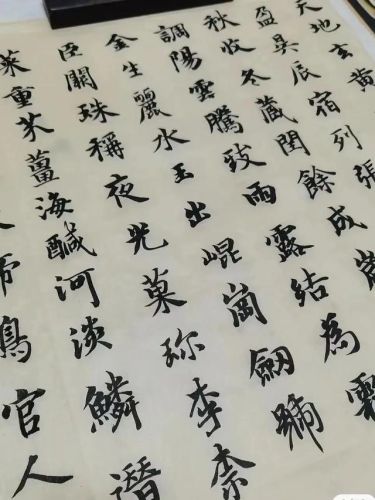 天地玄黃
盈昃辰宿列張
秋收冬藏閏餘成歲
調陽雲騰致雨露結為霜
金生麗水玉出崐崗劔號
巨闕珠稱夜光菓珍李柰
菜重芥薑海鹹河淡鱗潛
帝鳥官人